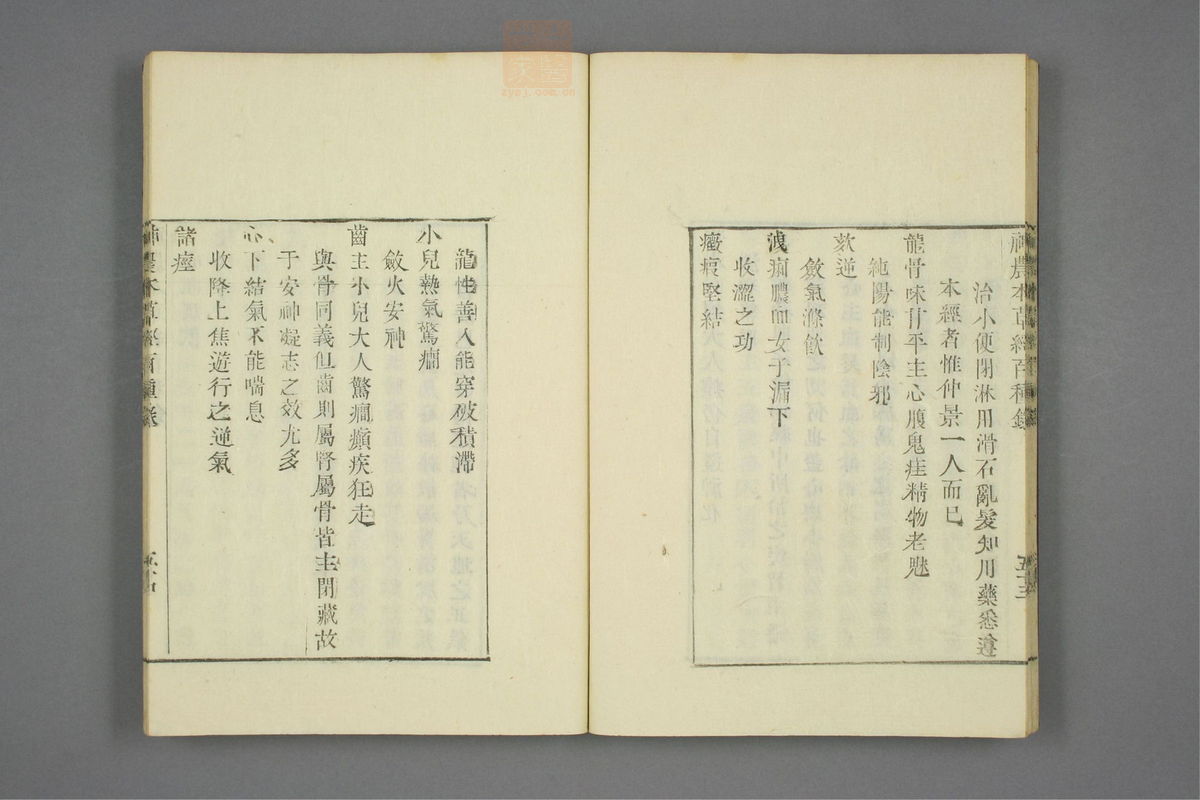 神農本草經百種錄
治小便閉淋用滑石亂髮知用藥悉遵
本經者惟仲景一人而已
龍骨味甘平主心腹鬼疰精物老魅
純陽能制陰邪
欬逆
斂氣滌飮
洩痢膿血女子漏下
收澀之功
癥瘕堅結
五十三
龍性善入能穿破積滯
小兒熱氣驚癎
斂火安神
齒主小兒大人驚癎癲疾狂走
與骨同義但齒則屬腎屬骨皆主閉藏故
于安神凝志之效尤多
心下結氣不能喘息
收降上焦遊行之逆氣
諸痙
神農本草經百種錄
zysj.com.cn